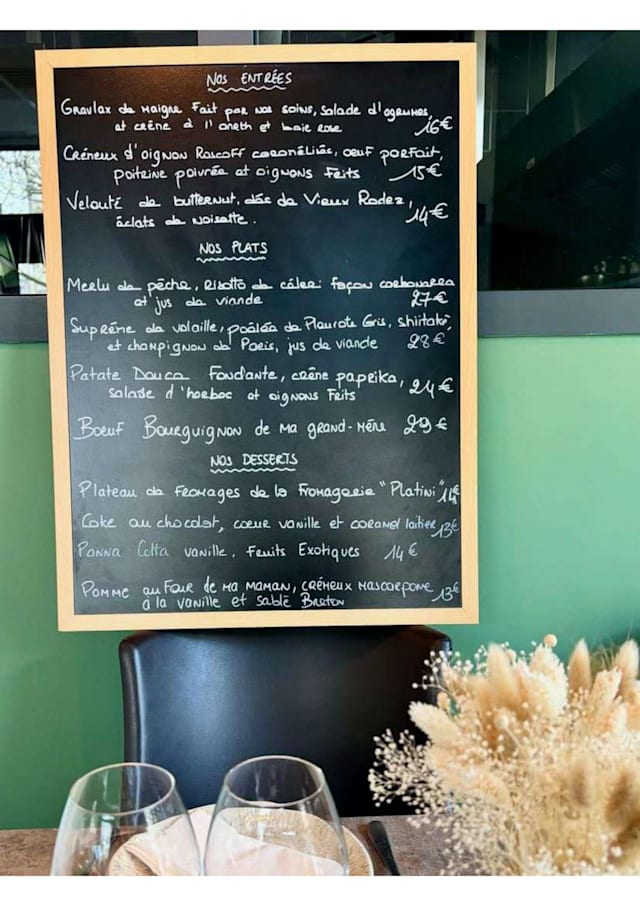 NOS ENTRÉES
Gravlax de maigre fait par nos soins, salade d'agrumes,
et crème à l'aneth et baie rose 16€
Crémeux d'oignon Roscoff caramélisés, oeuf parfait,
poitrine poivrée et oignons frits 15€
Velouté de butternut, dés de Vieux Rodez,
éclats de noisette. 14€
NOS PLATS
Merlu de pêche, risotto de céleri façon carbonara
et jus de viande 27€
Suprême de volaille, poêlée de Pleurote Gris, shiitaké,
et champignon de Paris, jus de viande 28€
Patate Douce Fondante, crème paprika,
salade d'herbes et oignons frits 24€
Boeuf Bourguignon de ma grand-mère 29€
NOS DESSERTS
Plateau de fromages de la fromagerie "Platini" 14€
Cake au chocolat, coeur vanille et caramel laitier 13€
Panna Cotta vanille, fruits Exotiques 14€
Pomme au four de ma maman, crémeux mascarpone
à la vanille et sablé Breton 13€